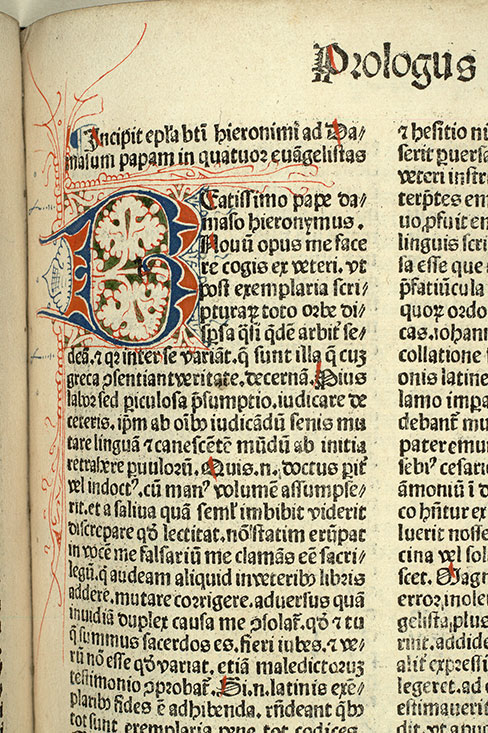 Prologus
Incipit epl̃a btĩ hieronimi ad Da⸗
masum papam in quatuor euãgelistas
Beatissimo pape da⸗
maso hieronymus.
Nouũ opus me face
re cogis ex veteri. vt
post exemplaria scri⸗
pturaꝝ toto orbe di⸗
spsa q̃si q̃dẽ arbiť se⸗
deã. ⁊ qꝛ inter se variãt. q̃ sunt illa q̃ cuȝ
greca ꝯsentiant veritate. decernã. Pius
labor sed piculosa p̃sumptio. iudicare de
ceteris. ip̃m ab oĩbꝰ iudicãdũ senis mu
tare linguã ⁊ canescẽtẽ mũdũ ab initia
retrahere puuloꝝ. Quis .n. doctus pir̃
vel indoctꝰ. cũ manꝰ volumẽ assumpse⸗
rit. et a saliua quã semł imbibit viderit
discrepare qđ lectitat. nõ statim erũpat
in vocẽ me falsariũ me clamãs eẽ sacri⸗
legũ. q̃ audeam aliquid in veteribꝰ libris
addere. mutare corrigere. aduersus quã
inuidiã duplex causa me ꝯsolat̃. qđ ⁊ tu
q̃ summus sacerdos es. fieri iubes. ⁊ ve⸗
rũ nõ esse qđ variat. etiã maledictoruȝ
testimonio ꝯprobat̃. Si .n. latinis exẽ⸗
plaribꝰ fides ẽ adhibenda. rñdeant q̃bꝰ
tot sunt exemplaria pene tot codices.
⁊ hesitio nu
serit puersa
veteri instr
terp̃tes em
uo, pfuit en
linguis scri
sa esse que
p̃fatiũcula
quoꝝ ordo
cas. iohann
collatione
onis latine
lamo impa
debant mu
pateremur
sebiꝰ cesarie
ãmoniũ i d
co hñtur ex
luerit nosse
cina vel sol
scet. Magn
error inoleu
gelista plus
rint. addide
alit̃ expressi
legeret. ad e
estimauerit
dit. vt apud